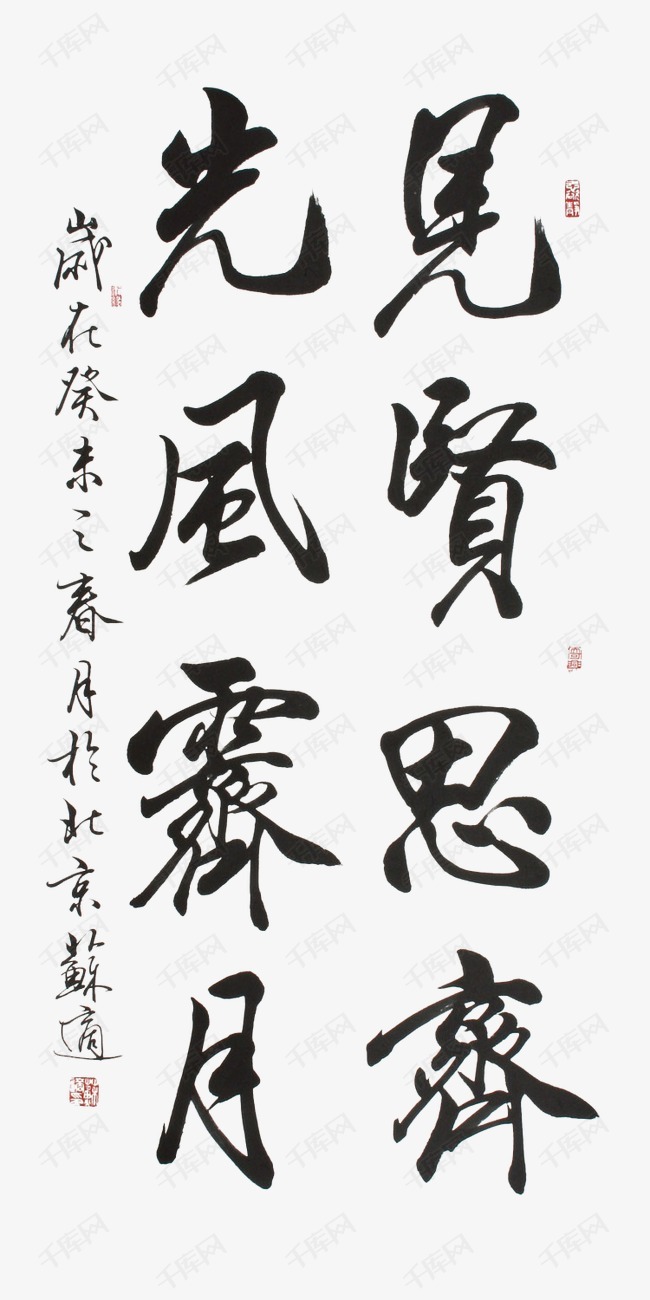 見賢思齊
光風霽月
歲在癸未之春月於北京蘇適
千库网